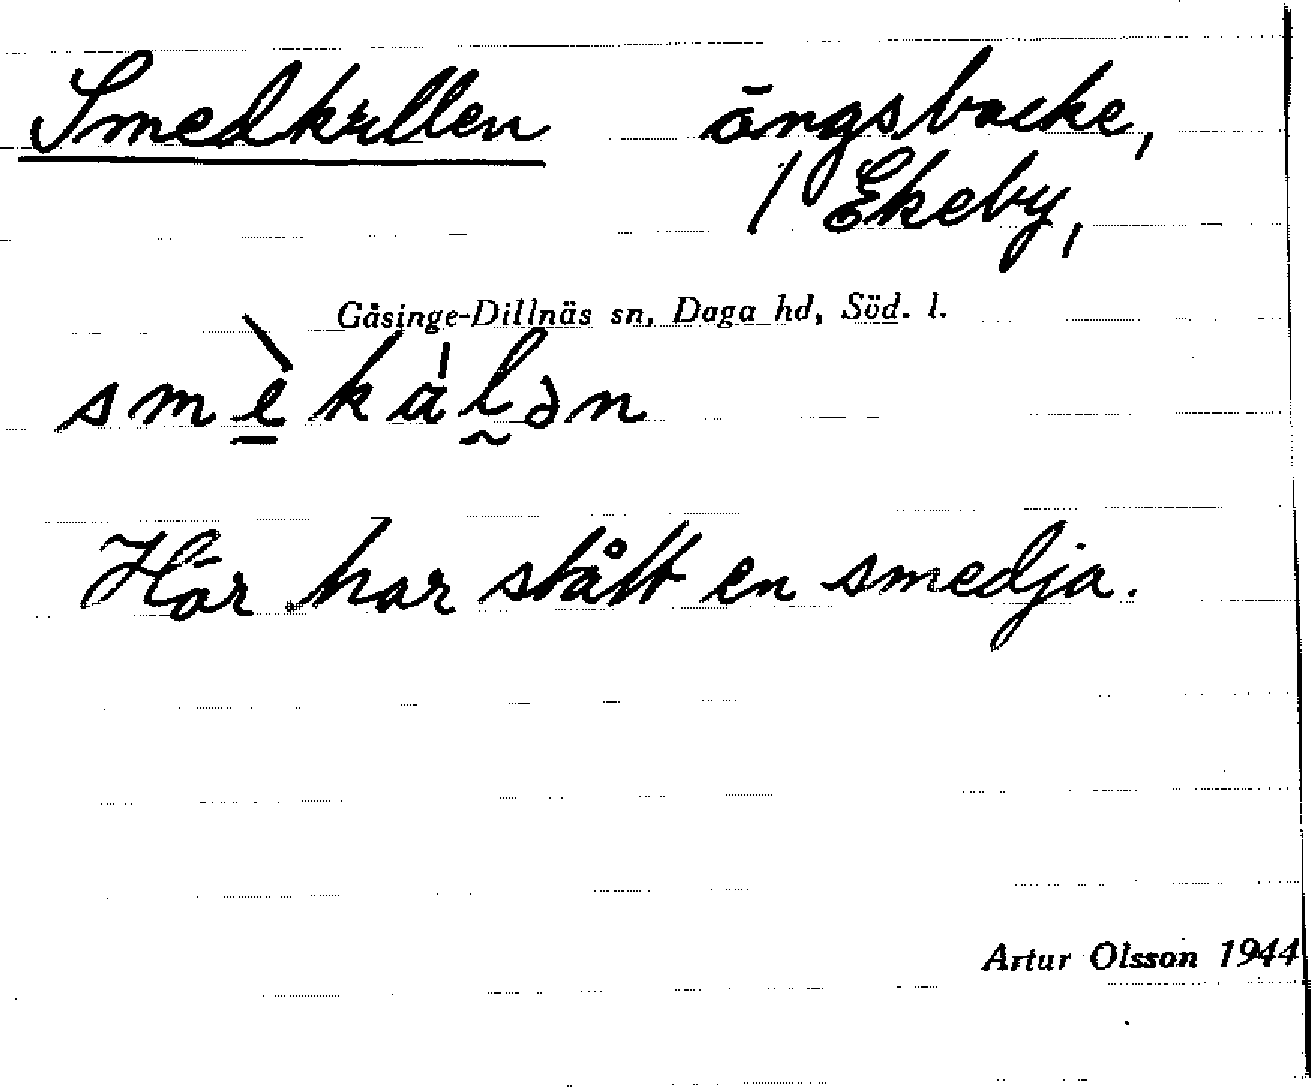 Smedkullen ängsbacke,
/ Ekeby,
Gåsinge-Dillnäs sn, Daga hd, Söd. l.
Här har stått en smedja.
Artur Olsson 1944